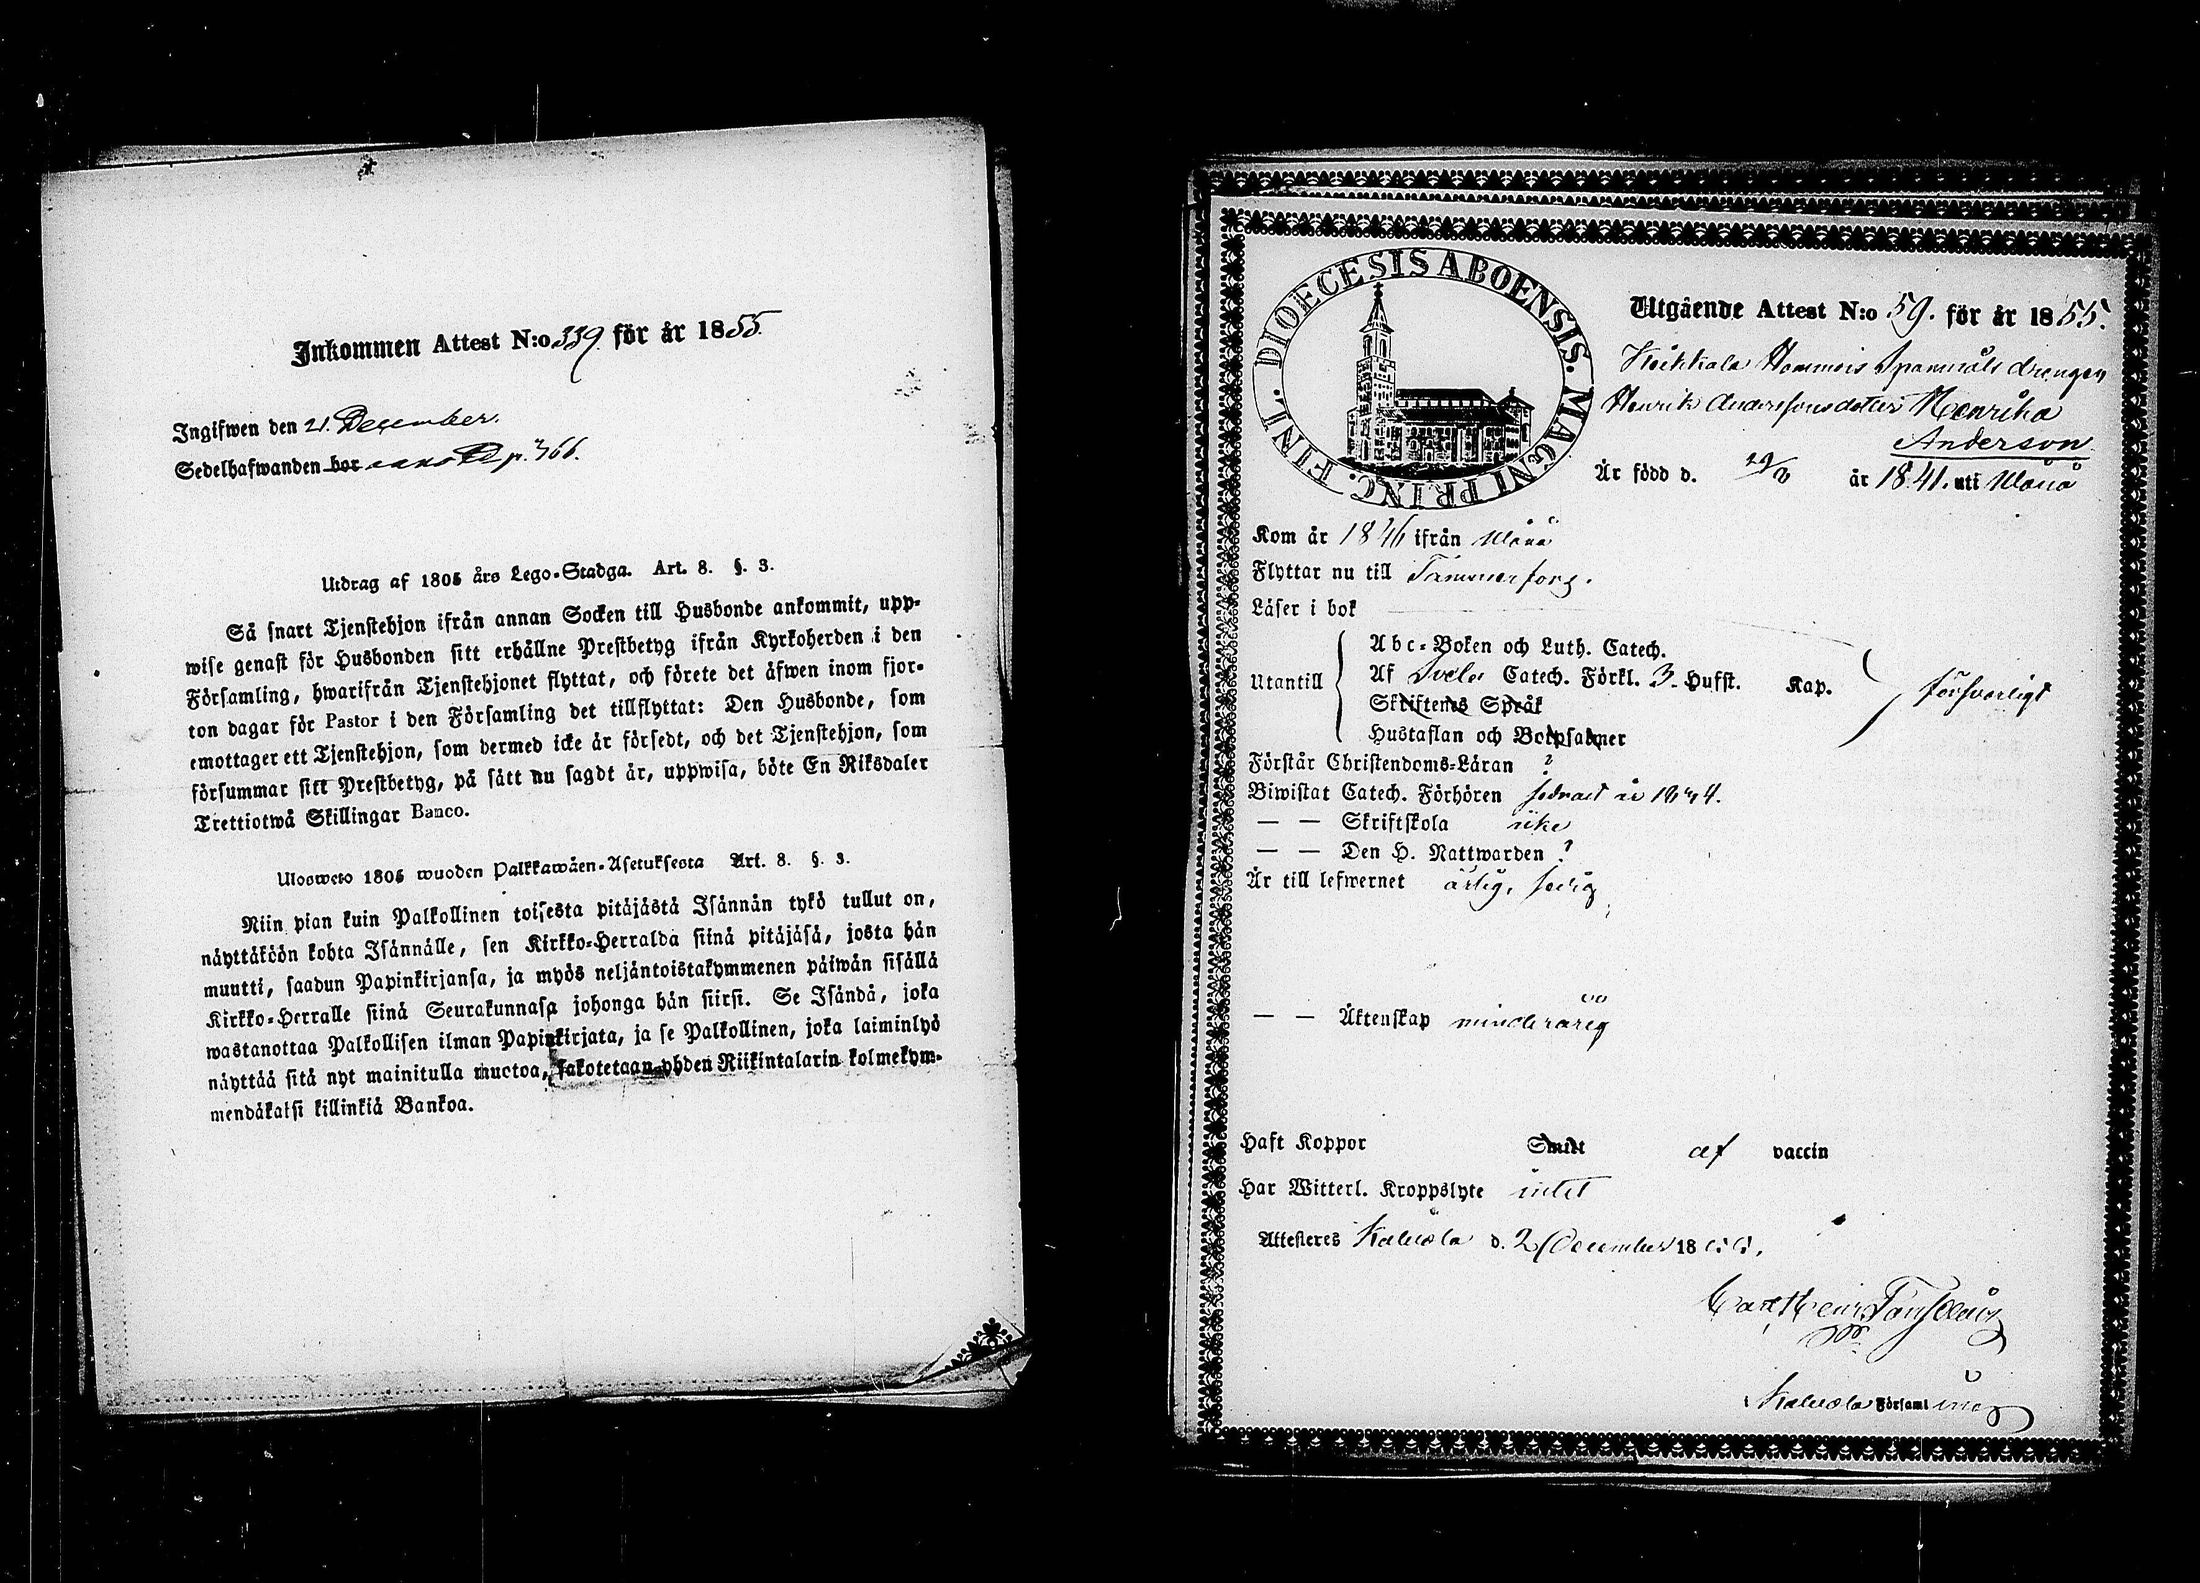 Inkommen Attest N:o 339. för år 1855.
Ingifwen den 21. December.
Sedelhafwanden bor p. 366.
Utdrag af 1805 års Lego-Stadga. Art. 8. §. 3.
Så snart Tjenstehjon ifrån annan Socken till Husbonde ankommit, upp-
wise genast för Husbonden sitt erhållne Prestbetyg ifrån Kyrkoherden i den
Församling, hwarifrån Tjenstehjonet flyttat, och förete det äfwen inom fjor-
ton dagar för Pastor i den Församling det tillflyttat: Den Husbonde, som
emottager ett Tjenstehjon, som dermed icke är försedt, och det Tjenstehjon, som
försummar sitt Prestbetyg, på sätt nu sagdt är, uppwisa, böte En Riksdaler
Trettiotwå Skillingar Banco.
Ulosweto 1805 wuoden Palkkawäen-Asetuksesta Art. 8. §. 3.
Niin pian kuin Palkollinen toisesta pitäjästä Isännän tykö tullut on,
näyttäköön kohta Isännälle, sen Kirkko-Herralda siinä pitäjäsä, josta hän
muutti, saadun Papinkirjansa, ja myös neljäntoistakymmenen päiwän sisällä
Kirkko-Herralle siinä Seurakunnasa johonga hän siirsi. Se Isändä, joka
wastanottaa Palkollisen ilman Papinkirjata, ja se Palkollinen, joka laiminlyö
näyttää sitä nyt mainitulla muotoa, sakotetaan yhden Riikintalarin kolmekym-
mendäkaksi killinkiä Bankoa.
DIOECESIS ABOENSIS. MAGNI PRINC. FINL.
Utgående Attest N:o 59. för år 1855.
Heikkala Hommois Spanmåls drengen
Henrik Anderssons dotter Henrika
Anderson
Är född d. år 1841. uti Urdiala
Kom år 1846 ifrån
Flyttar nu till Tammerfors.
Läser i bok
Utantill
Abc-Boken och Luth. Catech.
Af Svebel. Catech. Förkl. 3. Hufst. Kap.
Skriftenes Språk
Hustaflan och Botpsalmer
försvarligt
Förstår Christendoms-Läran ?
Biwistat Catech. Förhören sednast år 1854.
— — Skriftskola icke
— — Den H. Nattwarden ?
Är till lefwernet ärlig, sedig
— — Äktenskap minderårig
Haft Koppor Smitt af vaccin
Har Witterl. Kroppslyte intet
Attesteres Kalvola d. 2 December 1855.
Carl Henr
Kalvola Församling